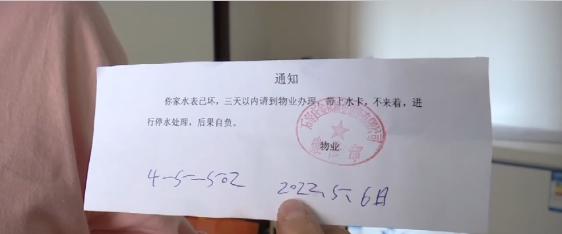 通知
你家水表已坏，三天以内请到物业办理，带上水卡，不来着，进
行停水处理，后果自负。
物业
4-5-502 2022.5.6日